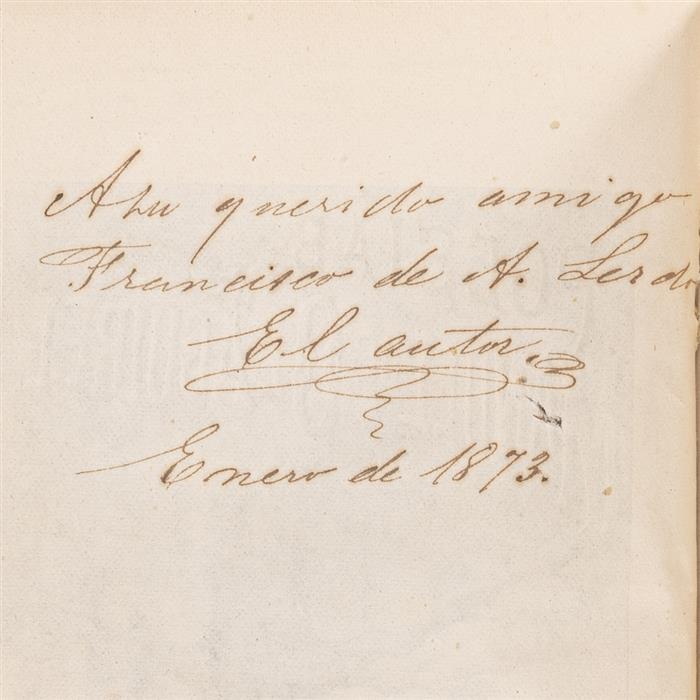 A su querido amigo
Francisco de A. Lerdo
El autor.
Enero de 1873.